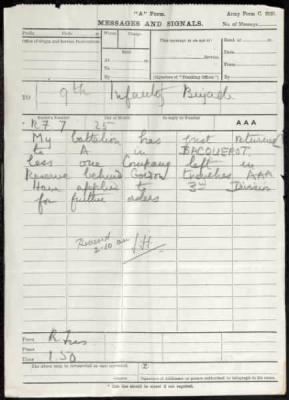 "A" Form.
Army Form C. 2121.
MESSAGES AND SIGNALS.
No. of Message
Prefix Code
Words
Charge
This message is on a/c of:
Office of Origin and Service Instructions.
Sent
At
To
By
Service.
(Signature of "Franking Officer.")
Date
From
By
TO 9th Infantry Brigade
Sender's Number
Day of Month
In reply to Number
AAA
RF 7 25
My battalion has just returned
to A in BACQUEROT
less one Company left in
Reserve behind Gordon trenches AAA
Have applied to 3rd Division
for further orders
Received
2-10 am
From R. Fus
Place
Time 1.50
The above may be forwarded as now corrected.
(Z)
Censor.
Signature of Addressor or person authorised to telegraph in his name.
* This line should be erased if not required.